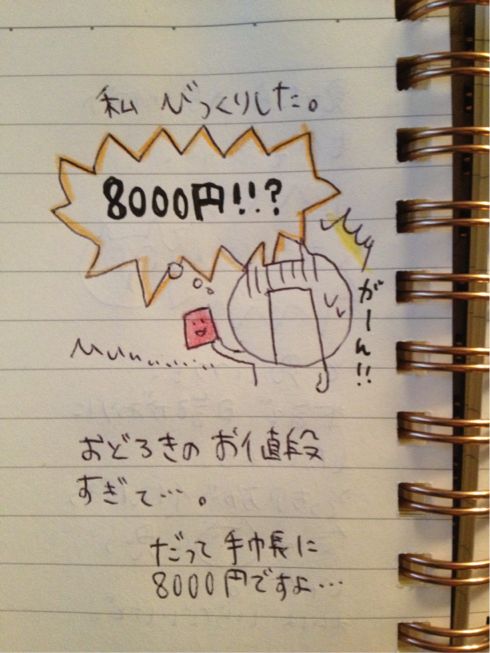 私 びっくりした。
8000円!!?
がーん!!
おどろきの お値段
すぎて…。
だって 手巾長に
8000円ですよ…